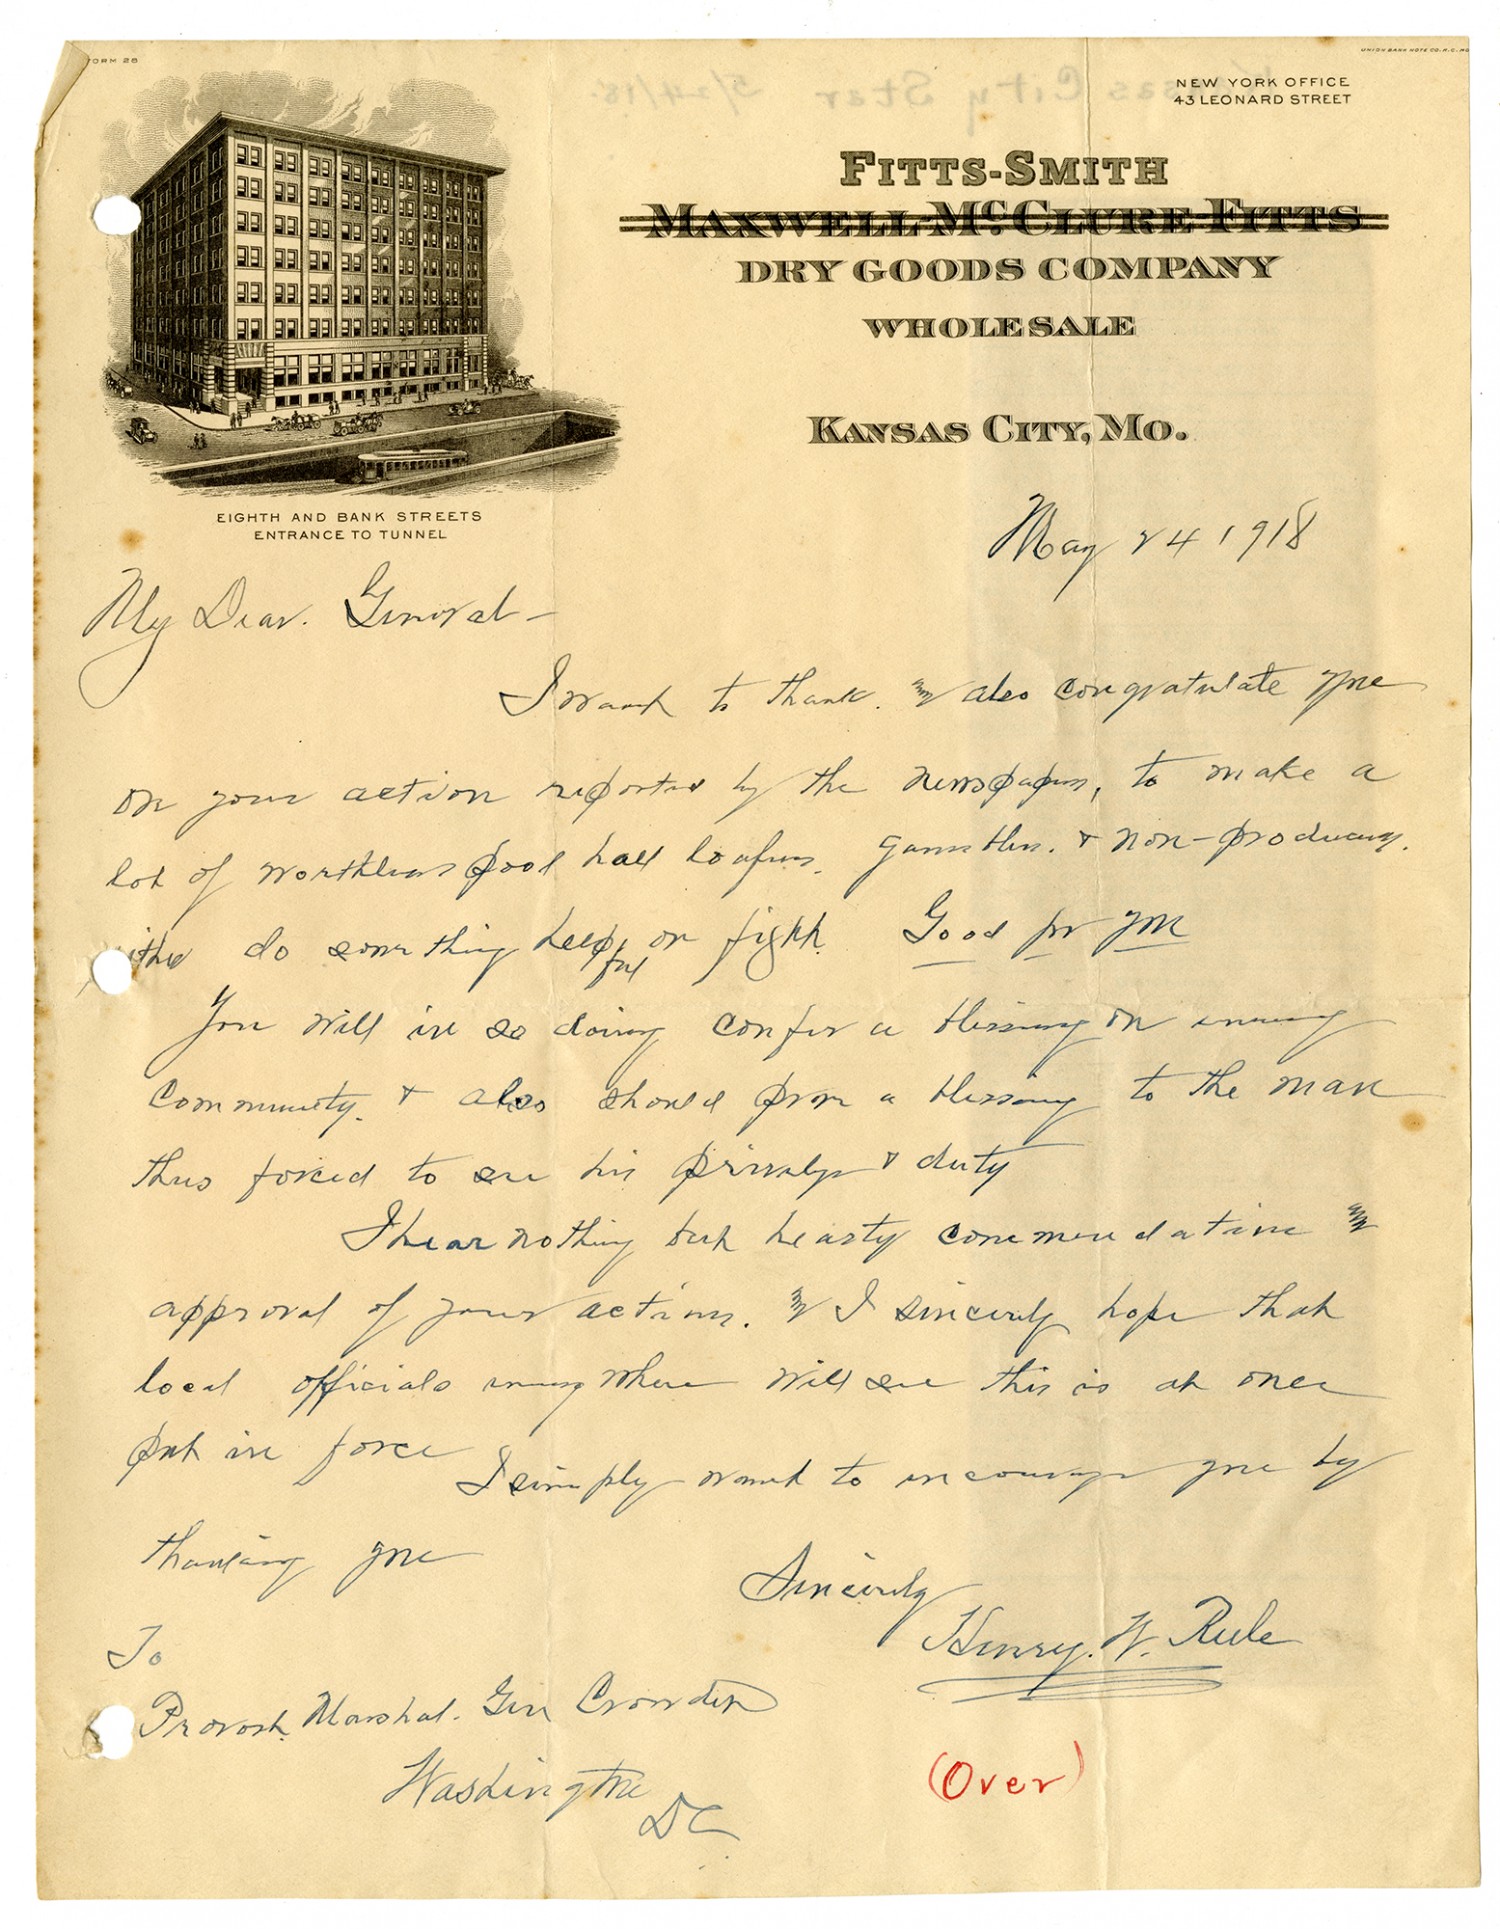 FORM 28
UNION BANK NOTE CO. K.C. MO.
NEW YORK OFFICE
43 LEONARD STREET
FITTS-SMITH
MAXWELL-McCLURE-FITTS
DRY GOODS COMPANY
WHOLESALE
KANSAS CITY, MO.
EIGHTH AND BANK STREETS
ENTRANCE TO TUNNEL
May 24 1918
My Dear. General—
I want to thank. & also congratulate you
on your action reported by the newspapers, to make a
lot of worthless pool hall loafers. gamblers. & non-producers.
either do something helpful or fight. Good for you
You will in so doing confer a blessing on every
community. & also should prove a blessing to the man
thus forced to see his privilege & duty
I hear nothing but hearty commendation &
approval of your action. & I sincerely hope that
local officials everywhere will see this is at once
put in force
I simply want to encourage you by
thanking you
Sincerely
Henry. W. Rule
To
Provost. Marshal. Gen Crowder
Washington
DC
(Over)
Kansas City Star 5/24/18